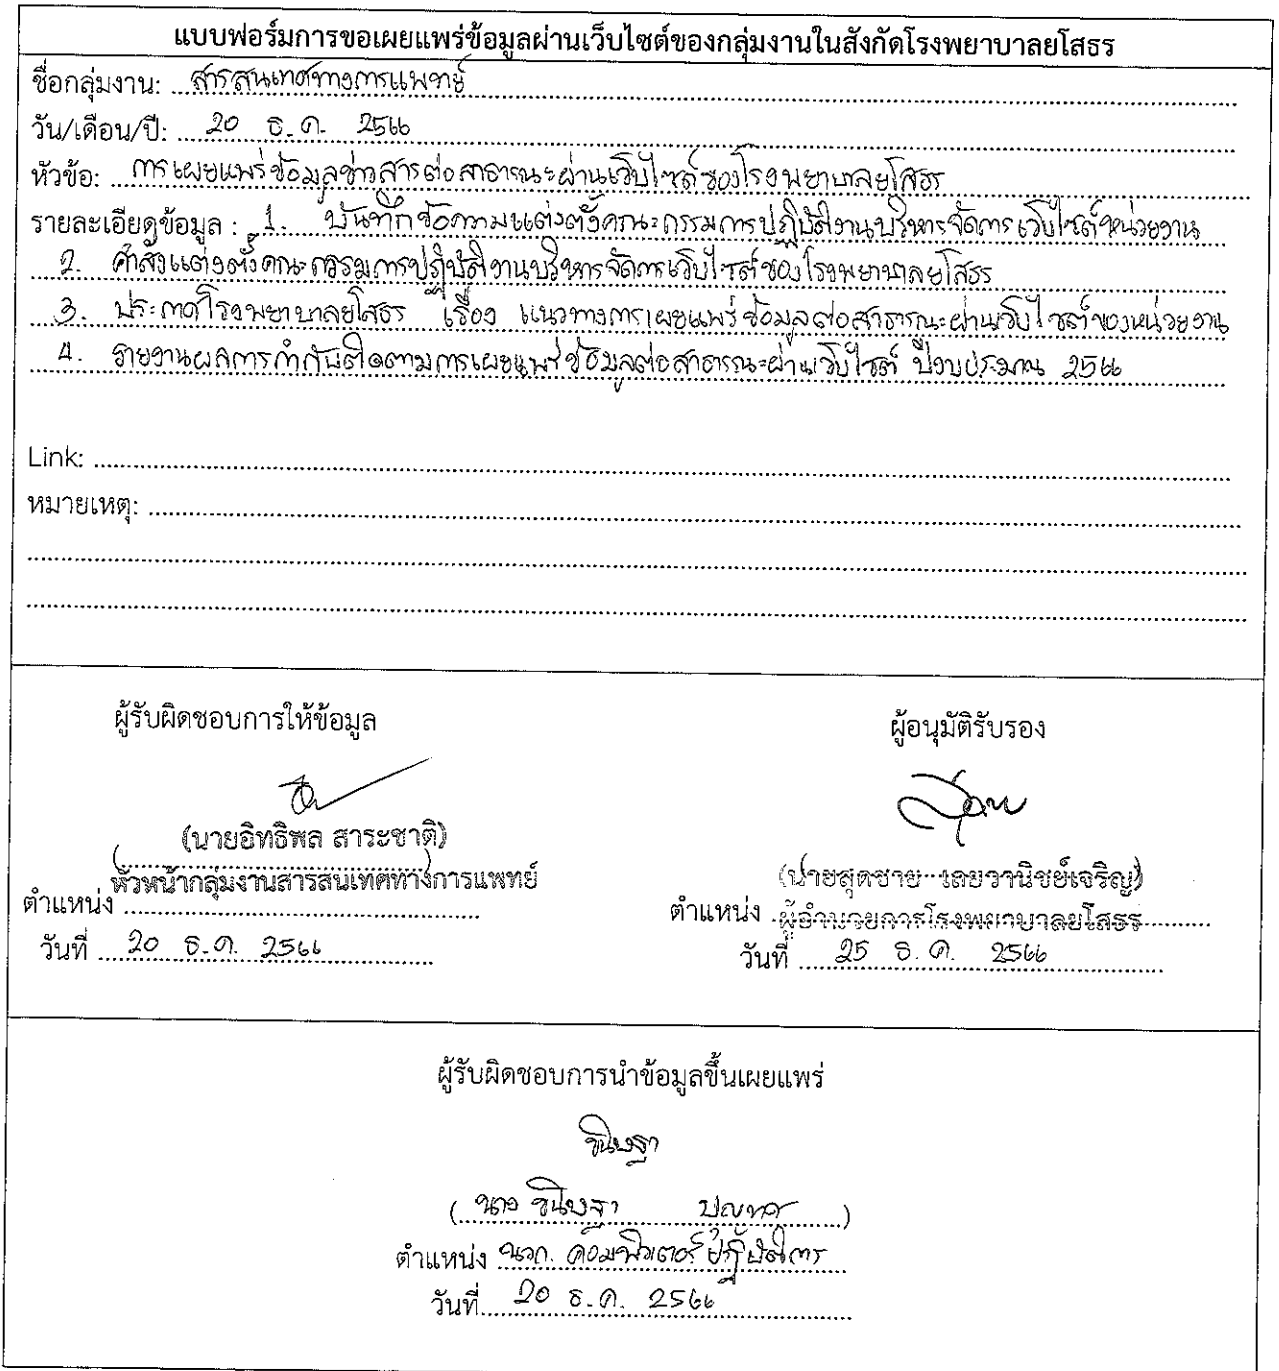 แบบฟอร์มการขอเผยแพร่ข้อมูลผ่านเว็บไซต์ของกลุ่มงานในสังกัดโรงพยาบาลยโสธร
ชื่อกลุ่มงาน: สารสนเทศทางการแพทย์
วัน/เดือน/ปี: 20 ธ.ค. 2566
หัวข้อ: การเผยแพร่ข้อมูลข่าวสารต่อสาธารณะผ่านเว็บไซต์ของโรงพยาบาลยโสธร
รายละเอียดข้อมูล : 1. บันทึกข้อความแต่งตั้งคณะกรรมการปฏิบัติงานบริหารจัดการเว็บไซต์หน่วยงาน
2. คำสั่งแต่งตั้งคณะกรรมการปฏิบัติงานบริหารจัดการเว็บไซต์ของโรงพยาบาลยโสธร
3. ประกาศโรงพยาบาลยโสธร เรื่อง แนวทางการเผยแพร่ข้อมูลต่อสาธารณะผ่านเว็บไซต์ของหน่วยงาน
4. รายงานผลการกำกับติดตามการเผยแพร่ข้อมูลต่อสาธารณะผ่านเว็บไซต์ ปีงบประมาณ 2566
Link:
หมายเหตุ:
ผู้รับผิดชอบการให้ข้อมูล ผู้อนุมัติรับรอง
(นายอิทธิพล สาระชาติ) (นายสุดชาย เลยวานิชย์เจริญ)
ตำแหน่ง หัวหน้ากลุ่มงานสารสนเทศทางการแพทย์ ตำแหน่ง ผู้อำนวยการโรงพยาบาลยโสธร
วันที่ 20 ธ.ค. 2566 วันที่ 25 ธ.ค. 2566
ผู้รับผิดชอบการนำข้อมูลขึ้นเผยแพร่
ขนิษฐา
(นาง ขนิษฐา)
ตำแหน่ง นวก. คอมพิวเตอร์ปฏิบัติการ
วันที่ 20 ธ.ค. 2566